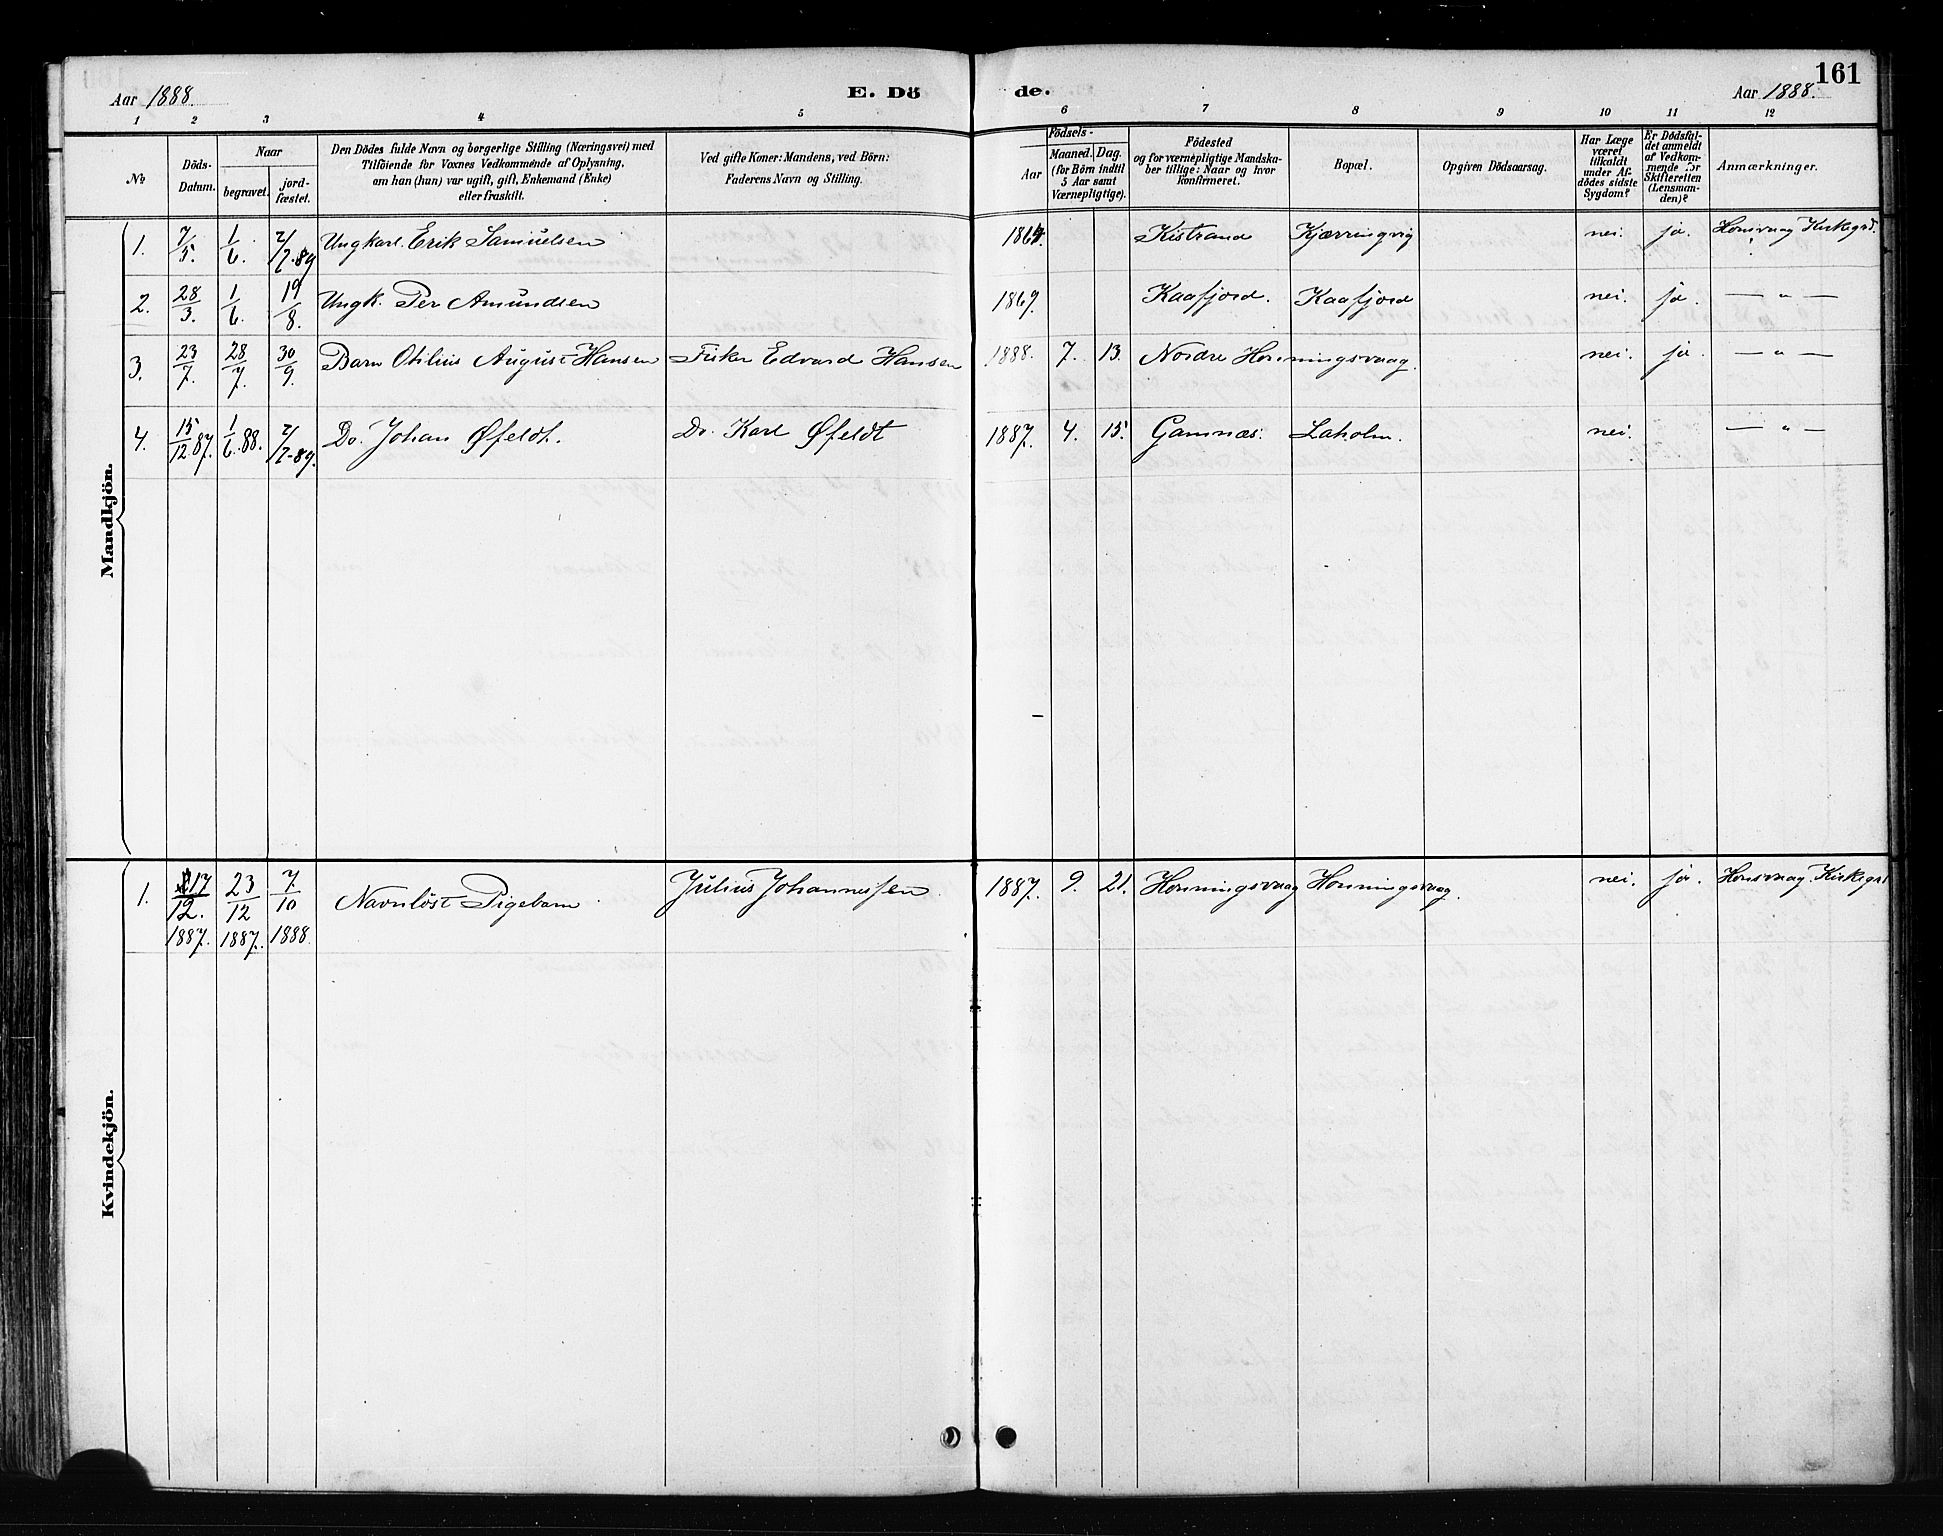 161
Aar 1888.
E. Dö
de.
Aar 1888.
1 2 3 4 5 6 7 8 9 10 11 12
No.
Döds-Datum.
Naar
begravet.
jord-fæstet.
Den Dödes fulde Navn og borgerlige Stilling (Næringsvei) med
Tilföiende for Voxnes Vedkommende af Oplysning,
om han (hun) var ugift, gift, Enkemand (Enke)
eller fraskilt.
Ved gifte Koner: Mandens, ved Börn:
Faderens Navn og Stilling.
Födsels-
Aar
Maaned. Dag.
(for Börn indtil
5 Aar samt
Værnepligtige).
Födested
og for værnepligtige Mandska-
ber tillige: Naar og hvor
konfirmeret.
Bopæl.
Opgiven Dödsaarsag.
Har Læge
været
tilkaldt
under Af-
dödes sidste
Sygdom?
Er Dödsfal-
det anmeldt
af Vedkom-
mende for
Skifteretten
(Lensman-
den)?
Anmærkninger.
Mandkjön.
1. 7/5. 1/6. 2/7.89 Ungkarl. Erik Samuelsen 1864. Kistrand Kjærringvig nei. ja. Honsvaag Kirkegrd.
2. 28/3. 1/6. 19/8. Ungk. Per Amundsen 1869. Kaafjord. Kaafjord nei. ja. — " —
3. 23/7. 28/7. 30/9. Barn Otilius August Hansen Fisker Edvard Hansen 1888. 7. 13. Nordre Honningsvaag. nei. ja. — " —
4. 15/12.87. 1/6.88. 2/7.89. Do. Johan Øfeldt. Do. Karl Øfeldt 1887. 4. 15. Gamnæs. Laholm. nei. — " —
Kvindekjön.
1. 17/12. 1887. 23/12 1887. 7/10 1888. Navnløst Pigebarn Julius Johannessen 1887. 9. 21. Honningsvaag Honningsvaag. nei. ja. Honsvaag Kirkegrd